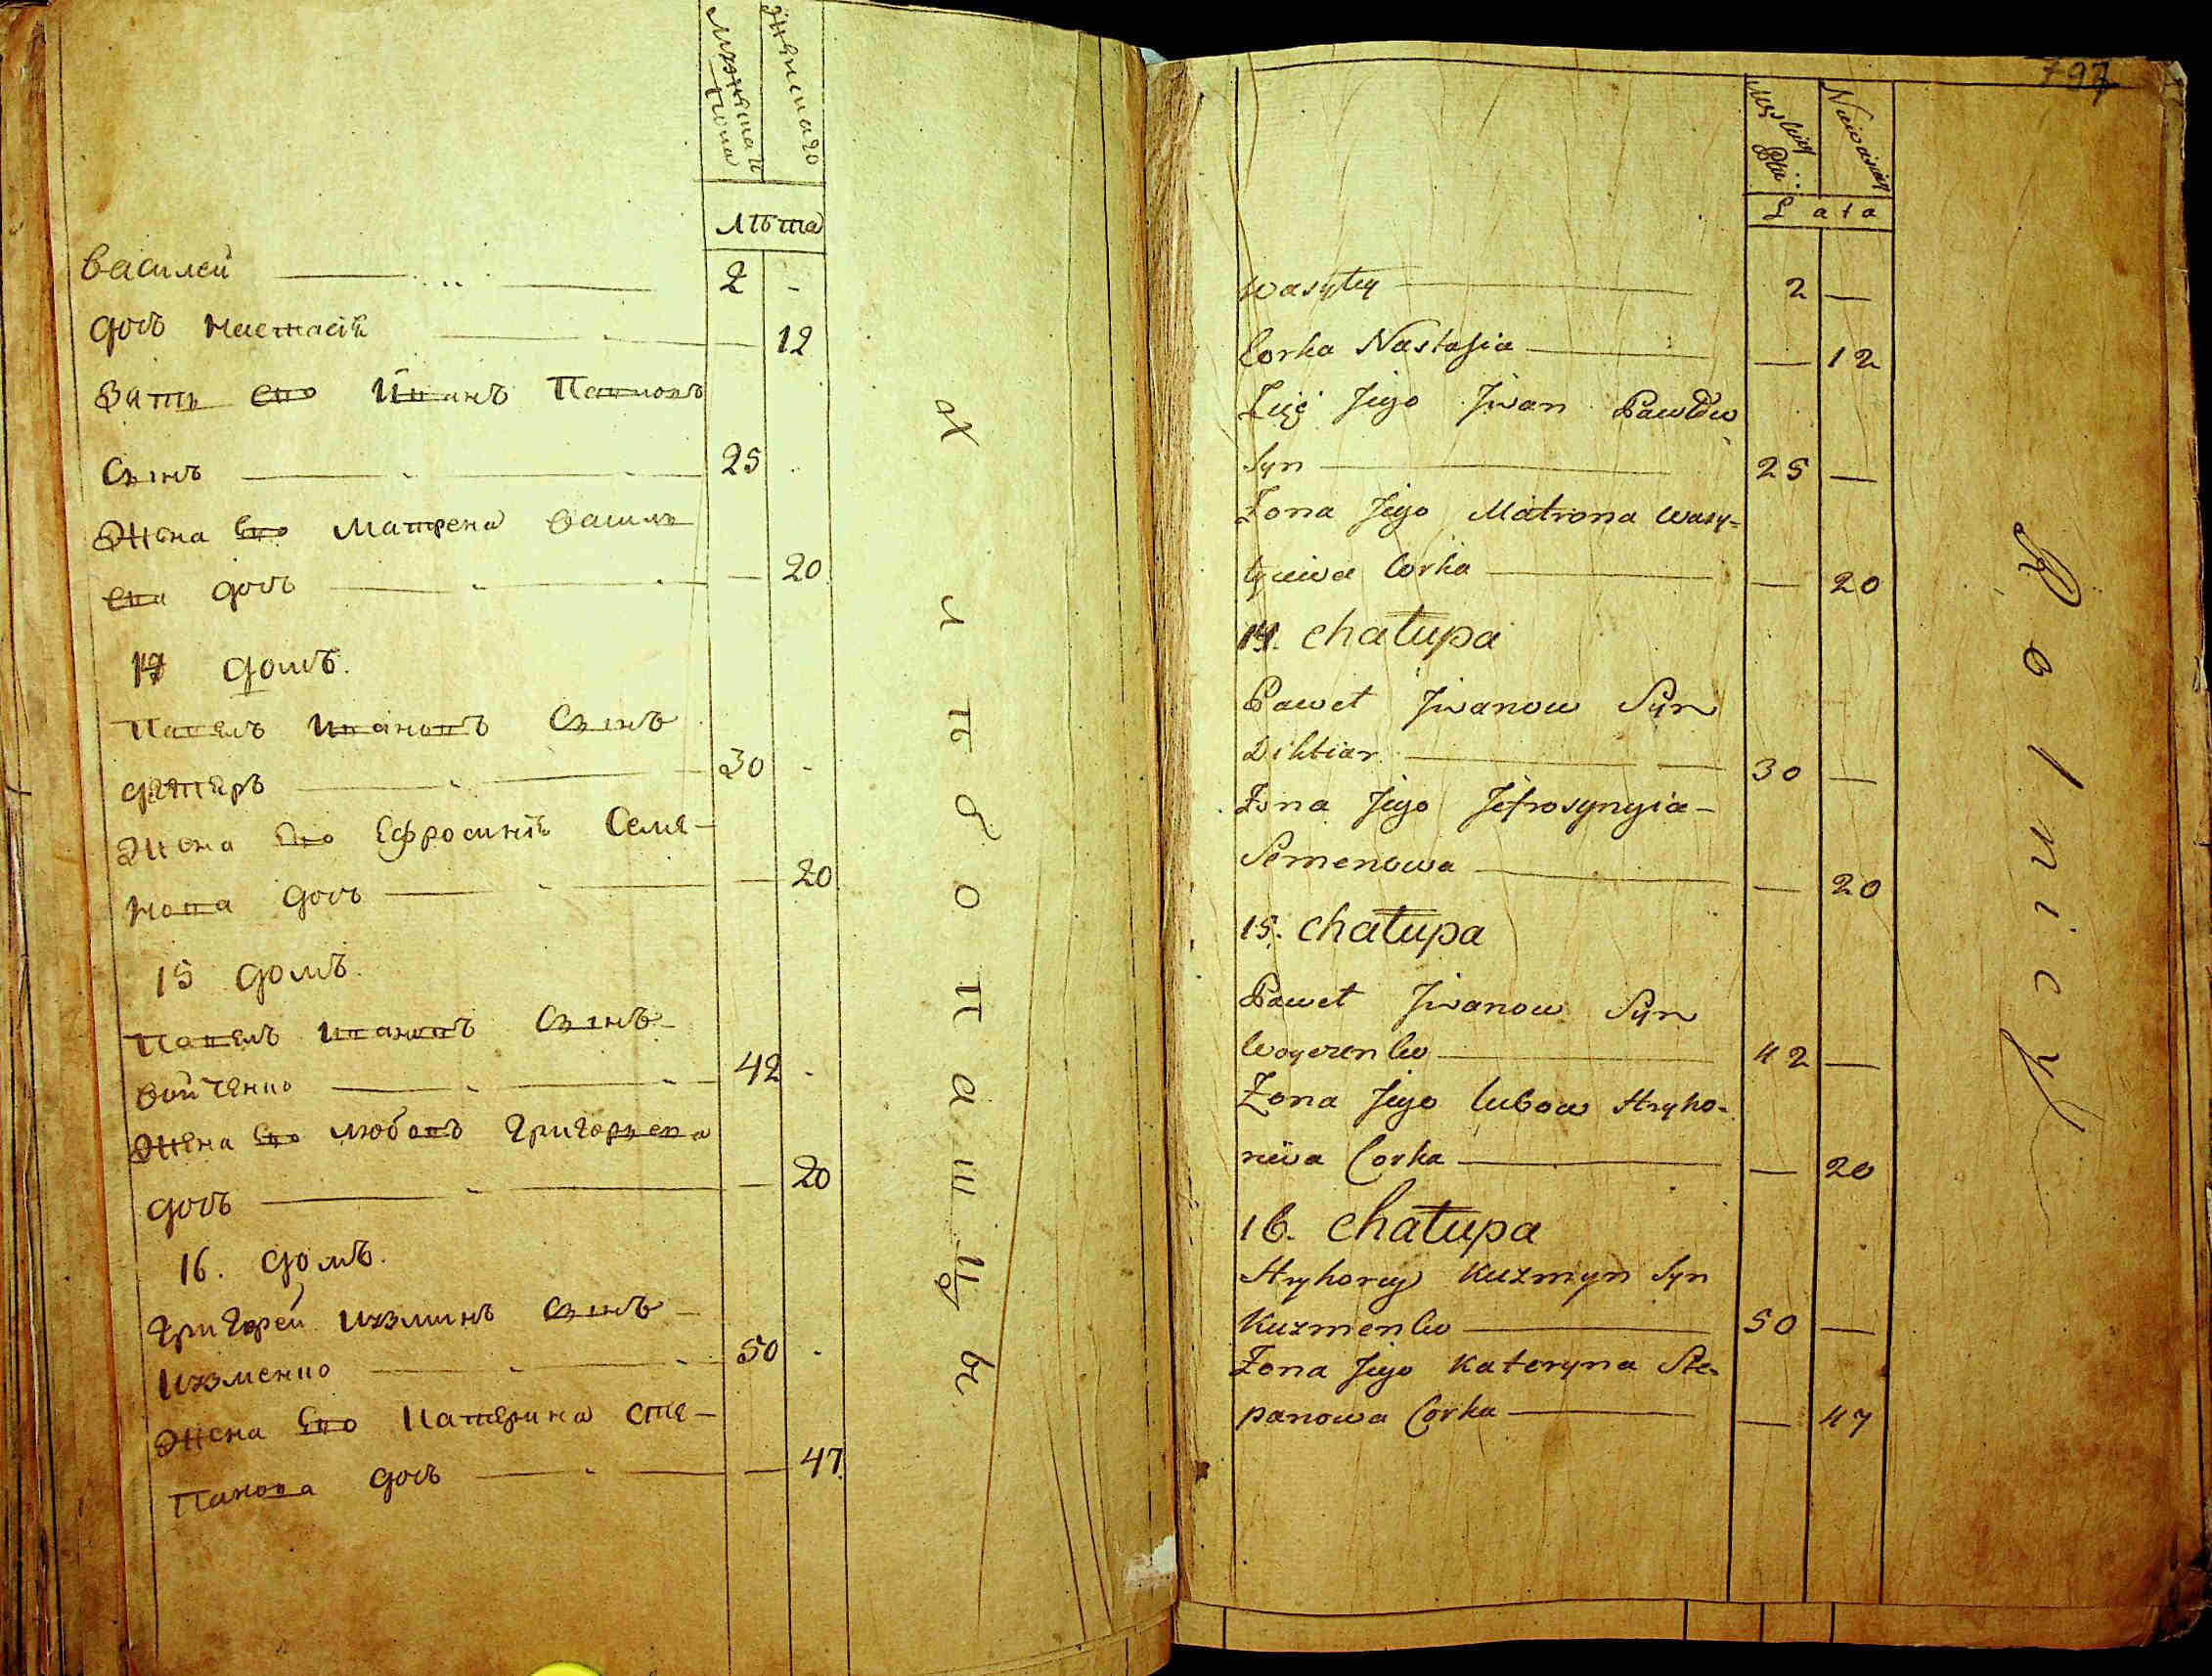 Мужеска пола
Женска го
Лѣта
Василей 2 -
дочъ Настасія — 12
Зать его Иванъ Павловъ
Сынъ 25
Жена его Матрена Василь
ева дочъ — 20
14 домъ.
Павелъ Ивановъ Сынъ
дегтяръ 30 -
Жена его Ефросинія Семе-
нова дочъ — 20
15 домъ.
Павелъ Ивановъ Сынъ
Войченко 42 -
Жена его Любовъ Григорьева
дочъ — 20
16. домъ.
Григорей Кузминъ Сынъ
Кузменко 50 -
Жена его Катерина Сте-
панова дочъ — 47
хлѣбопашцъ
797
Męskiey Płci
Niewieściey
Lata
Wasyłey 2 —
Corka Nastasia — 12
Zięć Jego Jwan Pawłow
Syn 25 —
Żona Jego Matrona Wasy-
łyiwa Corka — 20
14. Chałupa
Paweł Jwanow Syn
Dihtiar 30 —
Żona Jego Jefrosynyia
Semenowa — 20
15. Chałupa
Paweł Jwanow Syn
Woyczenko 42 —
Żona Jego Lubow Hryho-
riiwa Corka — 20
16. Chałupa
Hryhorey Kuzmyn Syn
Kuzmenko 50 —
Żona Jego Kateryna Ste-
panowa Corka — 47
Rolnicy